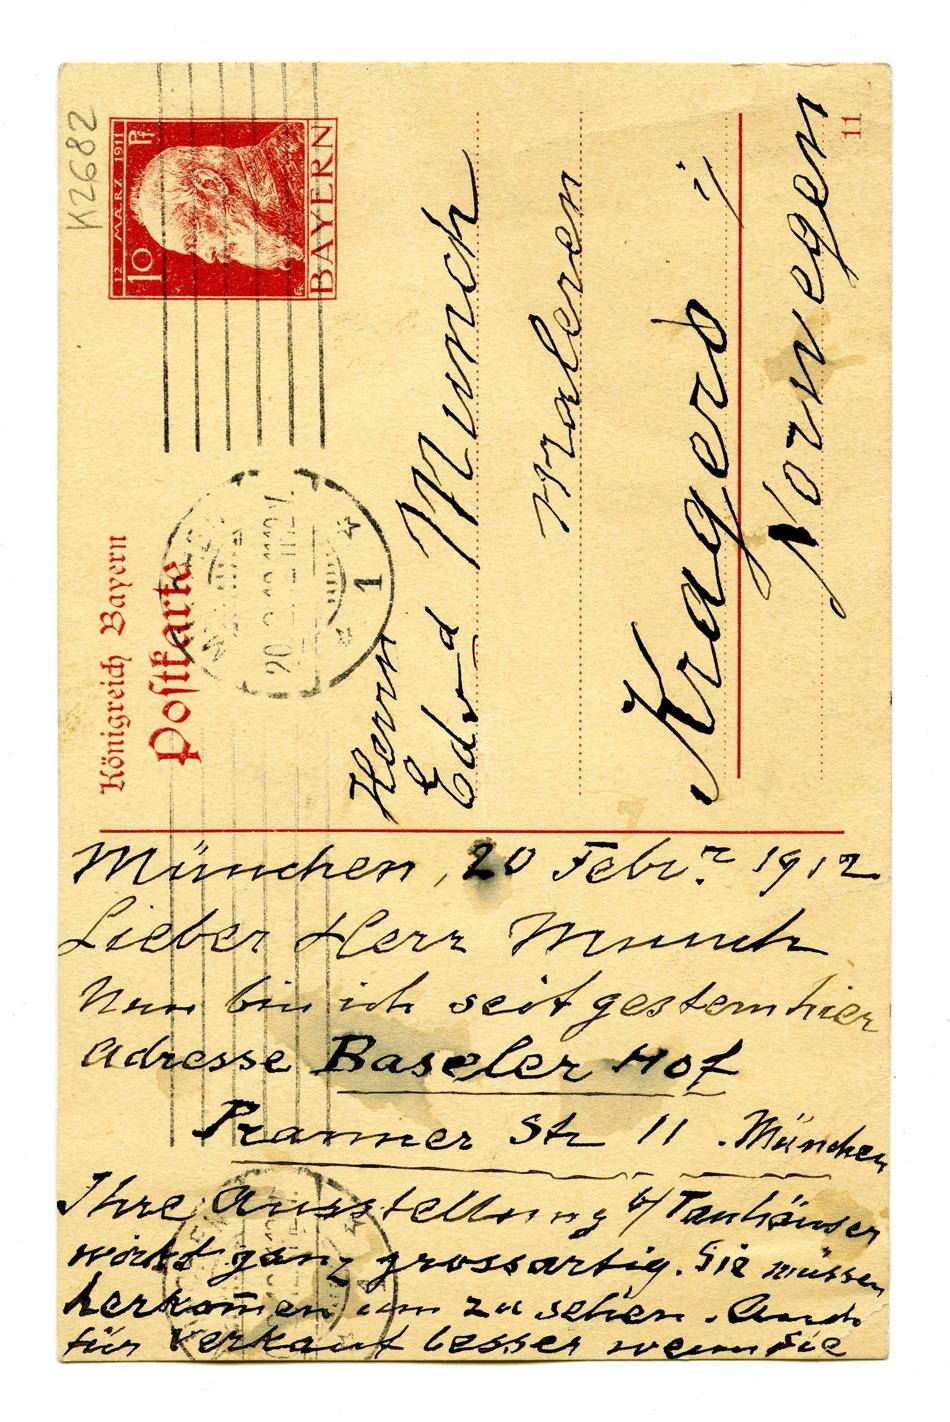 K2682
12 MÄRZ 1911
10 Pf
BAYERN
Königreich Bayern
Postkarte
1
11
Herrn
Edvard Munch
Maleren
Kragerö
i/
Norwegen
München, 20 Febr. 1912
Lieber Herr Munch
Nun bin ich seit gestern hier
Adresse Baseler Hof
Pranner Str 11. München
Ihre Ausstellung b/ Tanhäuser
wirkt ganz grossartig. Sie müssen
herkom̄en um zu sehen. Auch
für Verkauf besser wenn Sie